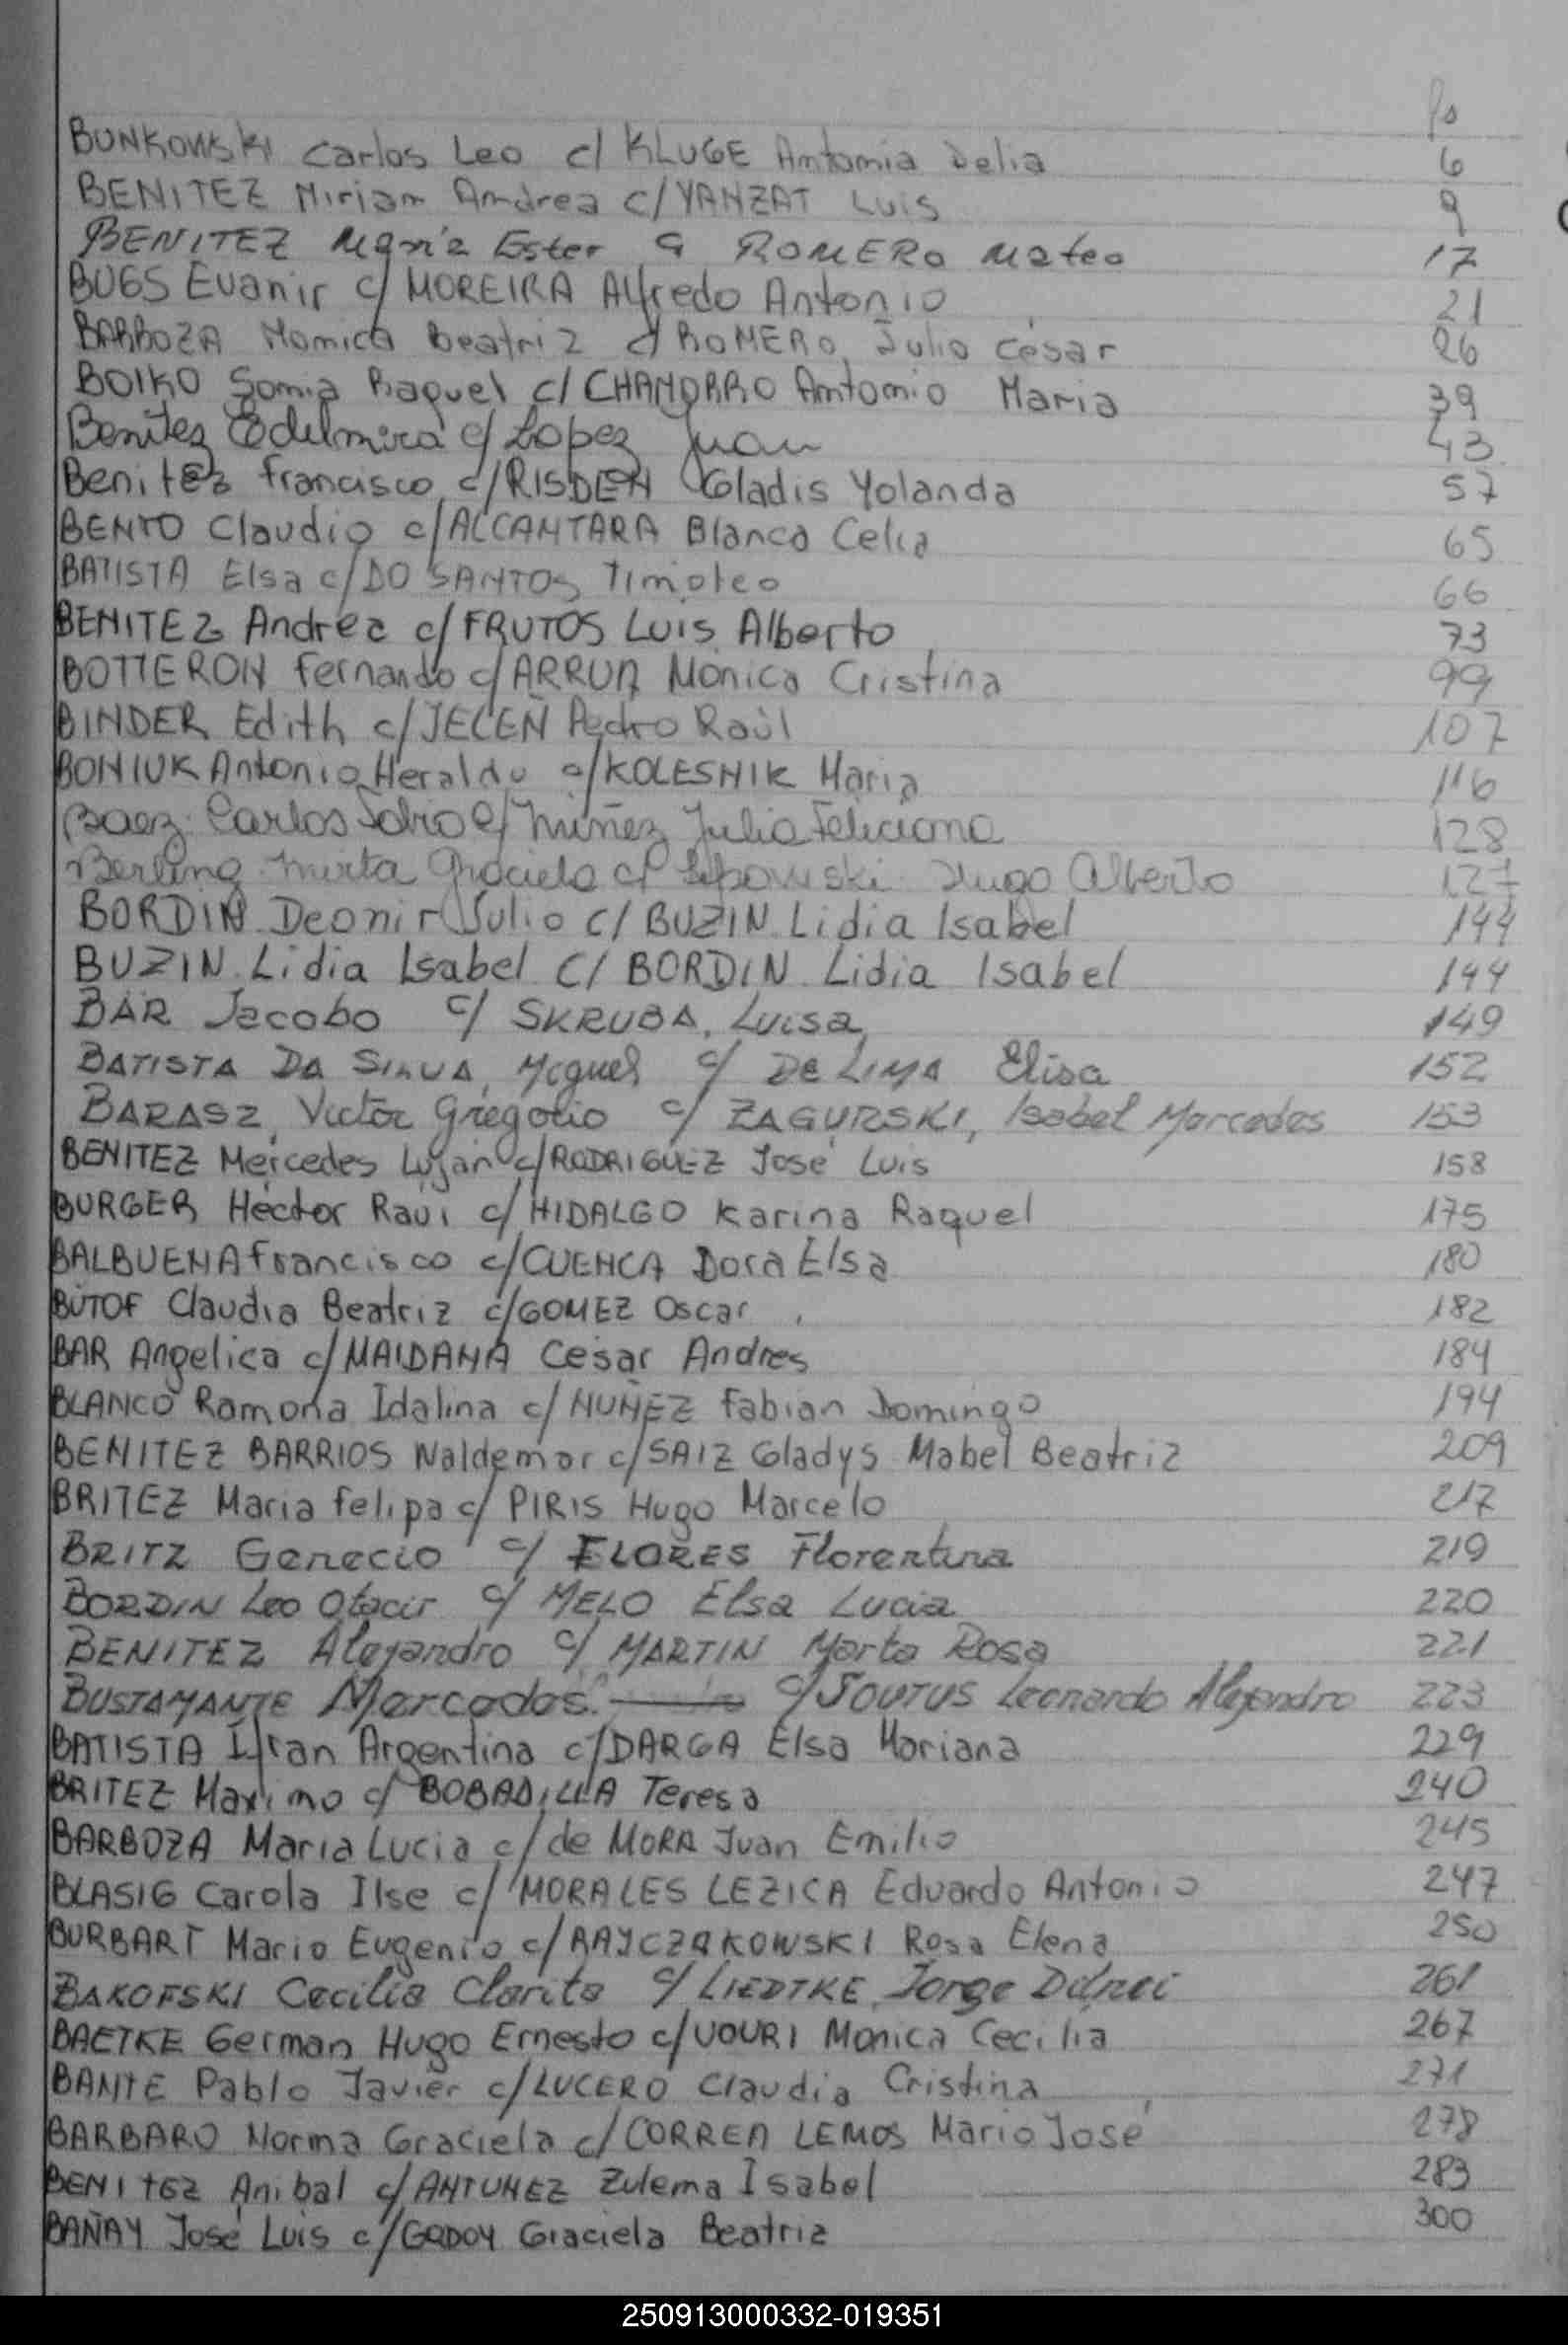 Fs
BUNKOWSKI Carlos Leo c/ KLUGE Antonia Delia 6
BENITEZ Miriam Andrea c/ YANZAT Luis 9
BENITEZ María Ester c/ ROMERO Mateo 17
BUGS Evanir c/ MOREIRA Alfredo Antonio 21
BARBOZA Monica Beatriz c/ ROMERO Julio César 26
BOIKO Sonia Raquel c/ CHAMORRO Antonio Maria 39
Benitez Edelmira c/ Lopez Juan 43
Benitez Francisco c/ RISDEN Gladis Yolanda 57
BENTO Claudio c/ ALCANTARA Blanca Celia 65
BATISTA Elsa c/ DO SANTOS Timoteo 66
BENITEZ Andrea c/ FRUTOS Luis Alberto 73
BOTTERON Fernando c/ ARRUA Monica Cristina 99
BINDER Edith c/ JELEÑ Pedro Raúl 107
BONIUK Antonio Heraldo c/ KOLESNIK Maria 116
Baez Carlos Fabio c/ Nuñez Julia Feliciana 128
Berling Mirta Graciela c/ Lipowski Hugo Alberto 127
BORDIN Deonir Julio c/ BUZIN Lidia Isabel 144
BUZIN Lidia Isabel C/ BORDIN Lidia Isabel 144
BÄR Jacobo c/ SKRUBA, Luisa 149
BATISTA DA SILVA, Miguel c/ DE LIMA Elisa 152
BARASZ, Victor Gregorio c/ ZAGURSKI, Isabel Mercedes 153
BENITEZ Mercedes Luján c/ RODRIGUEZ José Luis 158
BURGER Héctor Raúl c/ HIDALGO Karina Raquel 175
BALBUENA Francisco c/ CUENCA Dora Elsa 180
BÚTOF Claudia Beatriz c/ GOMEZ Oscar 182
BAR Angelica c/ MAIDANA Cesar Andres 184
BLANCO Ramona Idalina c/ NUÑEZ Fabian Domingo 194
BENITEZ BARRIOS Waldemar c/ SAIZ Gladys Mabel Beatriz 209
BRITEZ Maria Felipa c/ PIRIS Hugo Marcelo 217
BRITZ Genecio c/ FLORES Florentina 219
BORDIN Leo Otacir c/ MELO Elsa Lucia 220
BENITEZ Alejandro c/ MARTIN Marta Rosa 221
BUSTAMANTE Mercedes c/ Leonardo Alejandro 223
BATISTA Argentina c/ DARGA Elsa Mariana 229
BRITEZ Maximo c/ BOBADILLA Teresa 240
BARBOZA Maria Lucia c/ de MORA Juan Emilio 245
BLASIG Carola Ilse c/ MORALES LEZICA Eduardo Antonio 247
BURBART Mario Eugenio c/ RAJCZAKOWSKI Rosa Elena 250
BAKOFSKI Cecilia Clarita c/ LIEDTKE, Jorge 261
BAETKE German Hugo Ernesto c/ VOURI Monica Cecilia 267
BANTE Pablo Javier c/ LUCERO Claudia Cristina 271
BARBARO Norma Graciela c/ CORREA LEMOS Mario José 278
BENITEZ Anibal c/ ANTUNEZ Zulema Isabel 283
BAÑAY José Luis c/ GODOY Graciela Beatriz 300
250913000332-019351